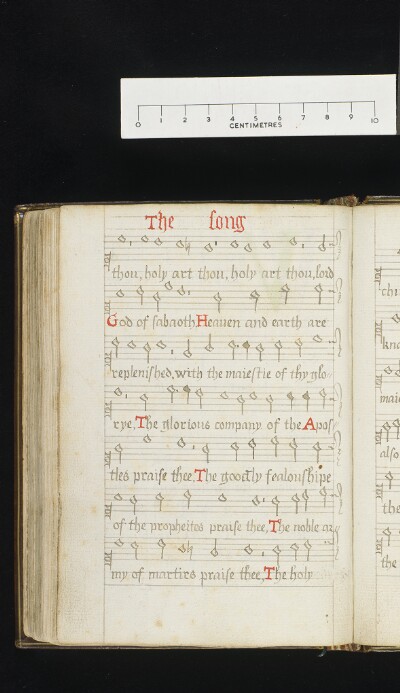 0 1 2 3 4 5 6 7 8 9 10
CENTIMETRES
The song
thou, holy art thou, holy art thou, lord
God of sabaoth, Heauen and earth are
replenished, with the maiestie of thy glo
rye, The glorious company of the Apos
tles praise thee, The goodly fealoushipe
of the propheites praise thee, The noble ar
my of martirs praise thee, The holy
chi
kno
maie
also
the
the